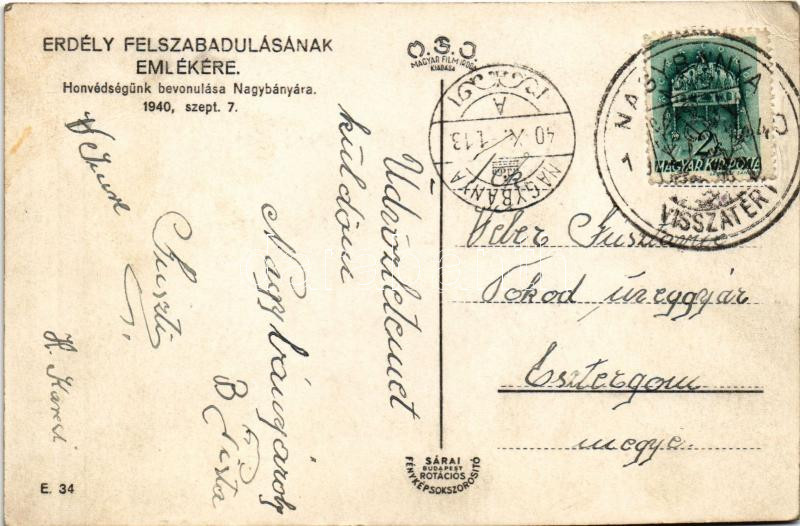 ERDÉLY FELSZABADULÁSÁNAK
EMLÉKÉRE.
Honvédségünk bevonulása Nagybányára.
1940, szept. 7.
O.S.J.
MAGYAR FILM IRODA
KIADÁSA
Üdvözletemet
küldöm
Nagybányáról
B. Pista
Guszti
H. Karcsi
E. 34
NAGYBÁNYA
40 X. 1.13
A
NAGYBÁNYA
1940
VISSZATÉRT
2
MAGYAR KIR. POSTA
Veber Gusztávné
Tokod üveggyár
Esztergom
megye.
SÁRAI
BUDAPEST
ROTÁCIÓS
FÉNYKÉPSOKSZOROSITÓ